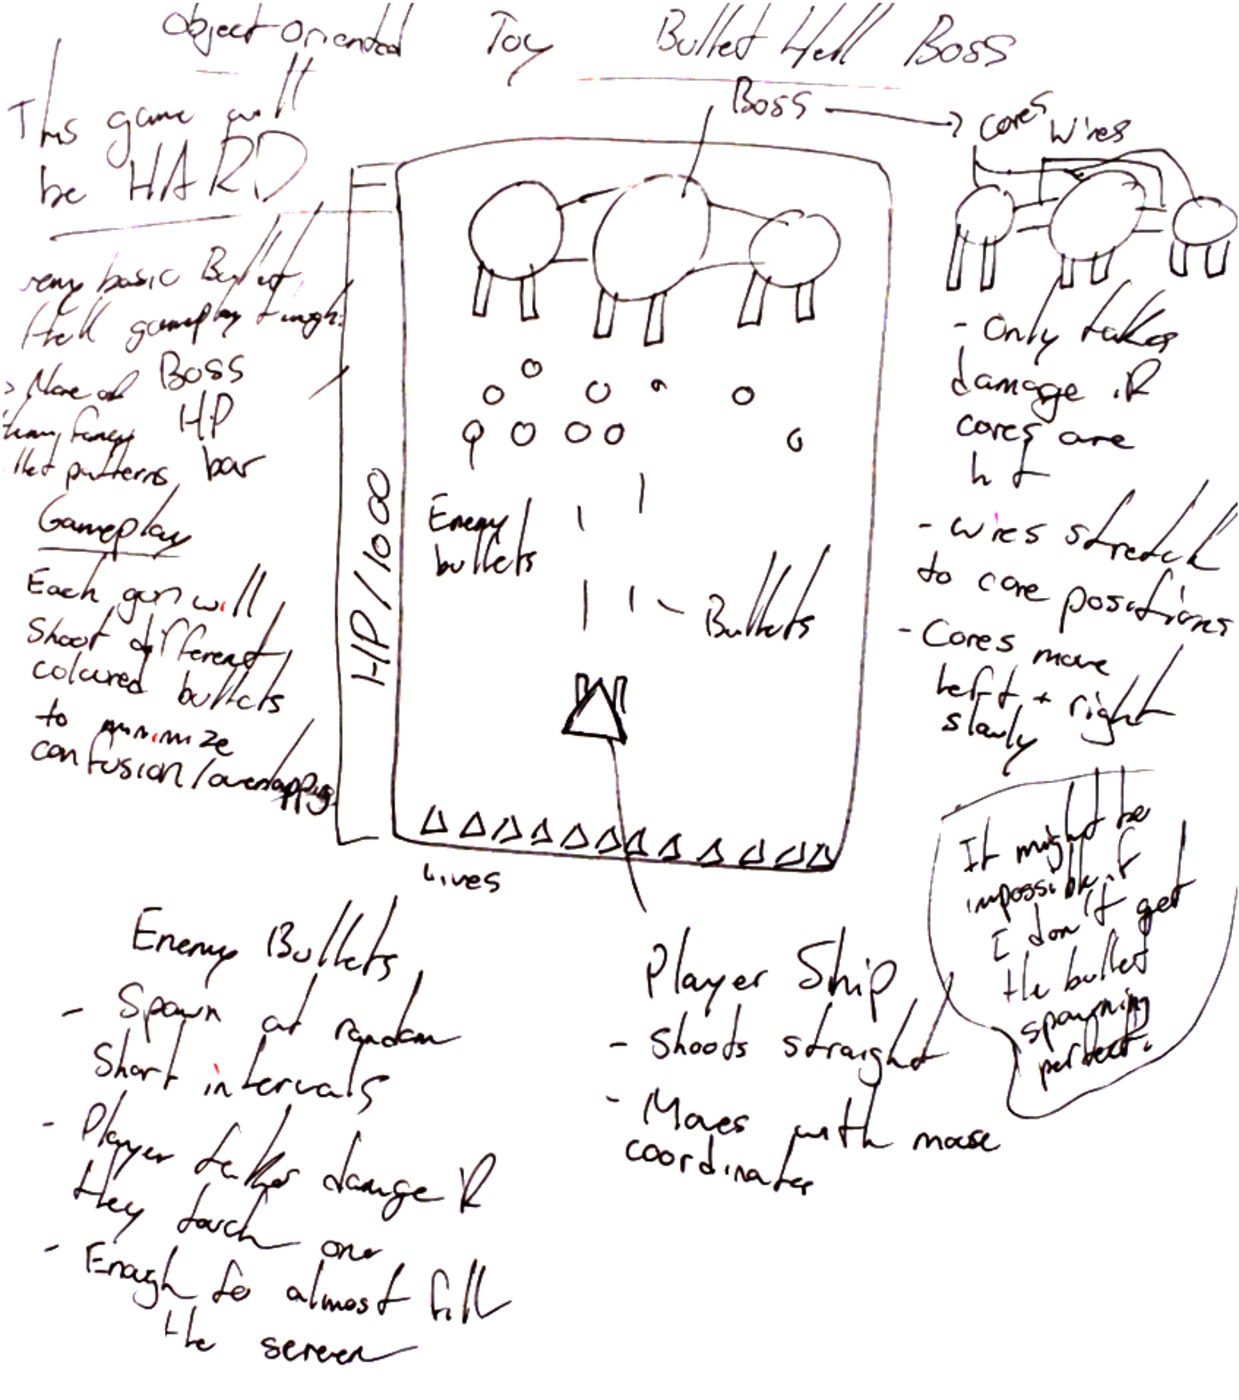 Object Oriented Toy Bullet Hell Boss
This game will
be HARD
very basic Bullet
Hell gameplay though.
> None of
them fancy
bullet patterns
Boss
HP
bar
Gameplay
Each gun will
shoot different
coloured bullets
to minimize
confusion/overlapping
HP/1000
Boss
Enemy
bullets
Bullets
Lives
cores wires
- Only takes
damage if
cores are
hit
- wires stretch
to core positions
- Cores move
left + right
slowly
It might be
impossible if
I don't get
the bullet
spawning
perfect.
Enemy Bullets
- Spawn at random
short intervals
- Player takes damage if
they touch one
- Enough to almost fill
the screen
Player Ship
- Shoots straight
- Moves with mouse
coordinates